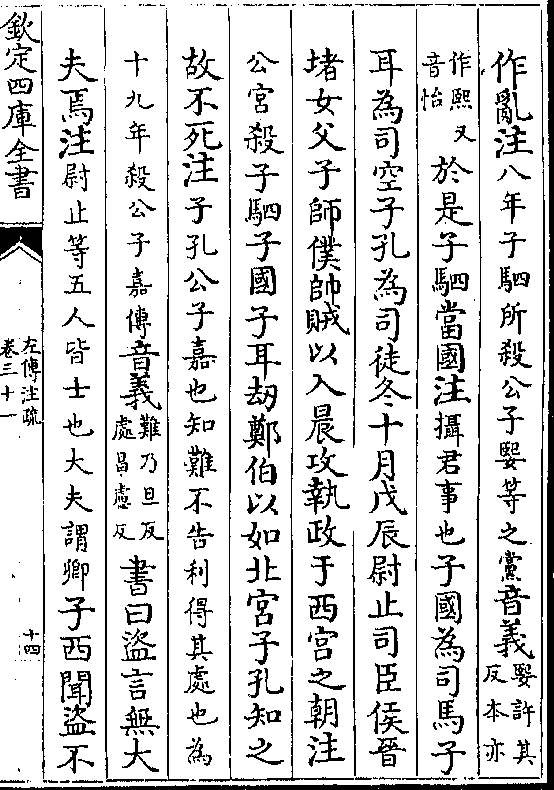 作亂注八年子駟所殺公子嬰等之黨音義嬰許其反本亦
作熙又音怡於是子駟當國注攝君事也子國為司馬子
耳為司空子孔為司徒冬十月戊辰尉止司臣侯晉
堵女父子師僕帥賊以入晨攻執政于西宮之朝注
公宮殺子駟子國子耳劫鄭伯以如北宮子孔知之
故不死注子孔公子嘉也知難不告利得其處也為
十九年殺公子嘉傳音義難乃旦反處昌慮反書曰盜言無大
夫焉注尉止等五人皆士也大夫謂卿子西聞盜不
欽定四庫全書
左傳注疏
卷三十一
十四